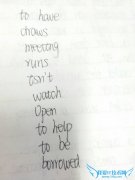 to have
draws
meeting
runs
isn't
watch
Open
to help
to be
borrowed